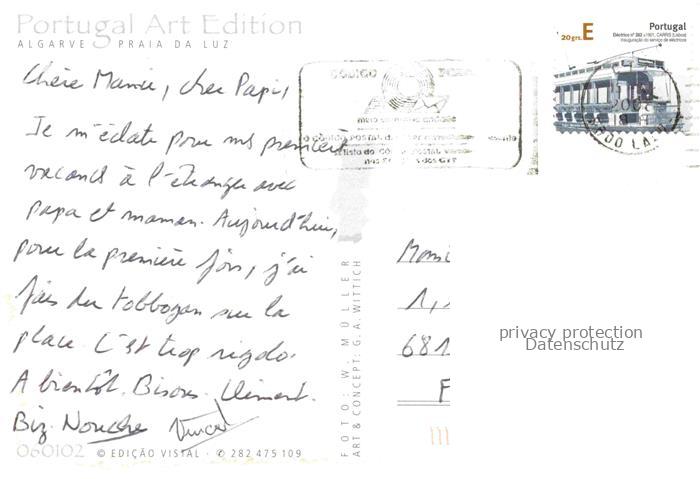 Portugal Art Edition
ALGARVE PRAIA DA LUZ
Chère Mamie, cher Papi,
Je m'éclate pour mes premières
vacances à l'étranger avec
papa et maman. Aujourd'hui,
pour la première fois, j'ai
fais du tobbogan sur la
place. C'est trop rigolo.
A bientôt. Bisous. Clément.
Biz Nouche Vincent
060102 © EDIÇÃO VISTAL · ✆ 282 475 109
FOTO: W. MÜLLER
ART & CONCEPT: G. A. WITTICH
CÓDIGO POSTAL
20 grs. E
Portugal
Eléctrico nº 283 (1901, CARRIS (Lisboa)
Inauguração do serviço de eléctricos
Monsi
1,
681
F
privacy protection
Datenschutz